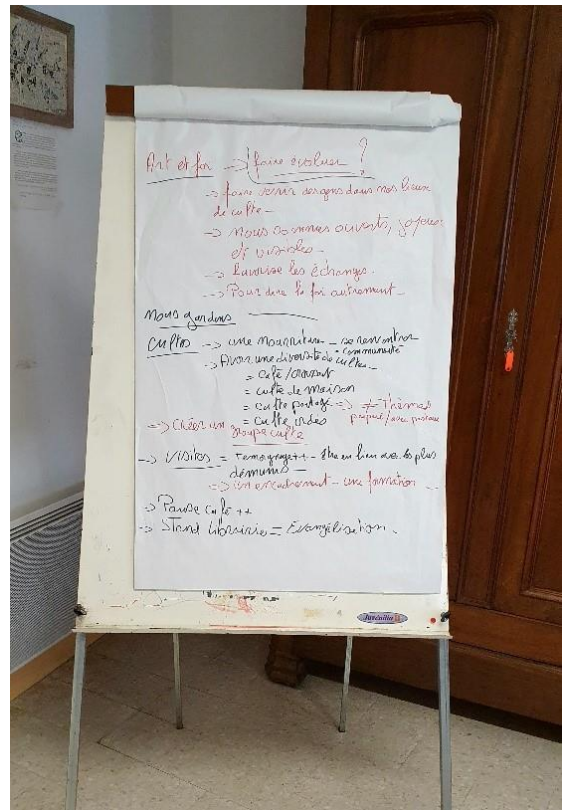 Art et foi -> faire évoluer ?
-> faire venir des gens dans nos lieux
de culte -
-> Nous sommes ouverts, joyeux
et visibles -
-> Favorise les échanges.
-> Pour dire la foi autrement -
Nous gardons
Cultes -> une nourriture - se rencontrer
communauté
-> Avoir une diversité de cultes -
= Café/croissant
= culte de maison
= culte partagé => ≠ Thèmes
préparé/avec pasteur
= Culte vidéo
=> Créer un groupe culte
-> Visites = Temoignage ++ - être en lien avec les plus
démunis -
=> un encadrement - une formation
-> Pause café ++
-> Stand librairie = Evangélisation -
Juvenilia